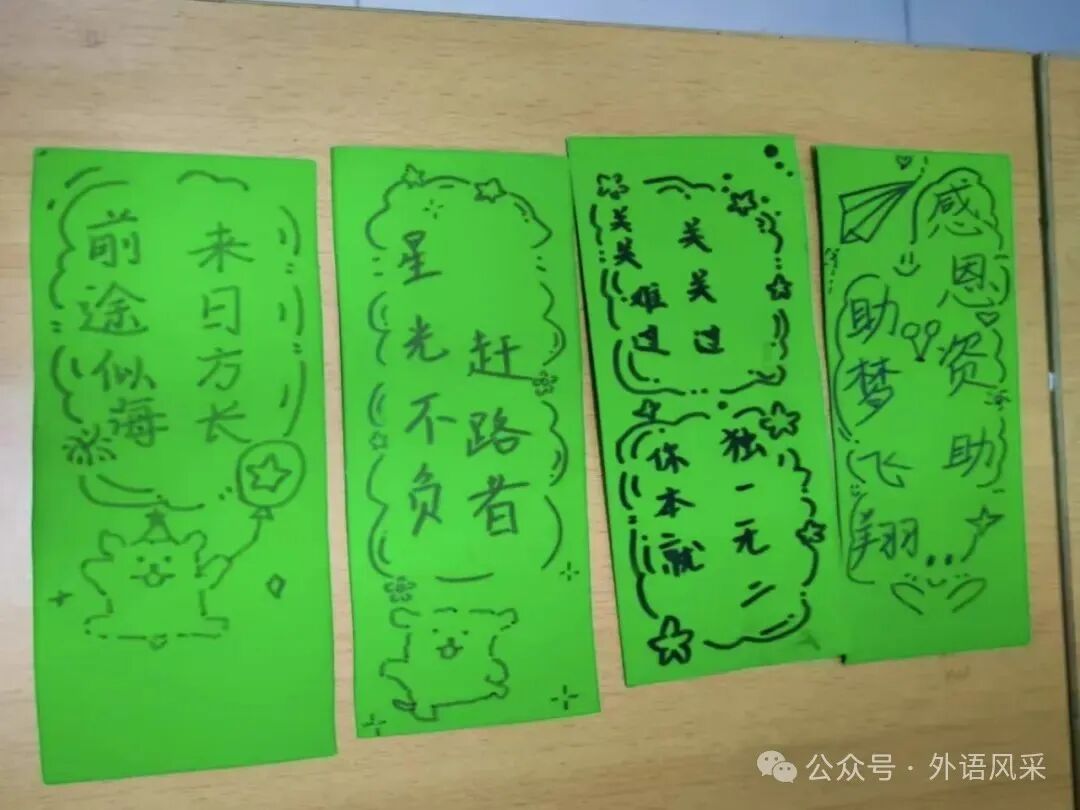 前途似海
来日方长
星光不负
赶路者
关关难过
关关过
你本就
独一无二
感恩资助
助梦飞翔
公众号·外语风采